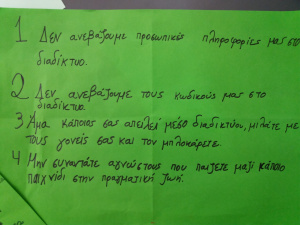 1 Δεν ανεβάζουμε προσωπικές πληροφορίες μας στο
διαδίκτυο.
2 Δεν ανεβάζουμε τους κωδικούς μας στο
διαδίκτυο.
3 Άμα κάποιος σας απειλεί μέσο διαδικτύου, μιλάτε με
τους γονείς σας και τον μπλοκάρετε.
4 Μην συναντάτε αγνώστους που παίζετε μαζί κάποιο
παιχνίδι στην πραγματική ζωή.